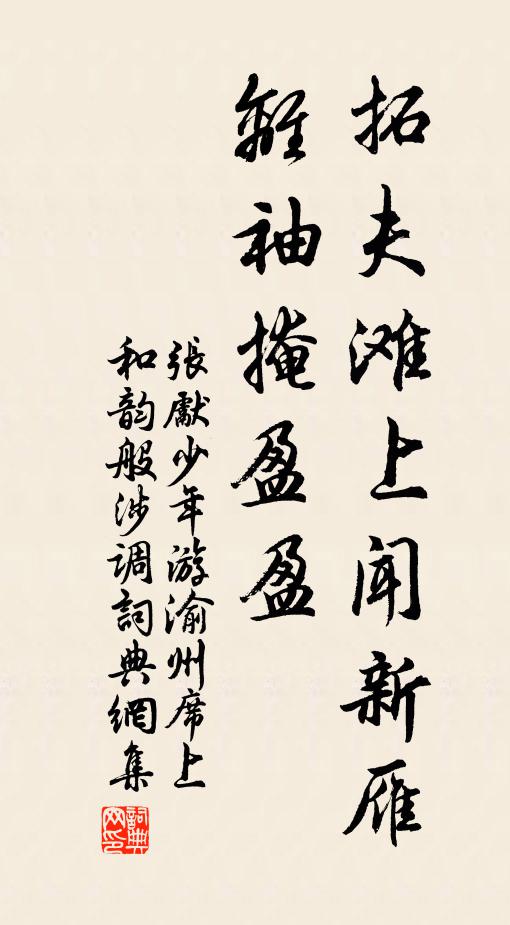 拓夫滩上闻新雁
離袖掩盈盈
張獻少年游渝州席上
和韵般涉调詞典網集
詞典網印